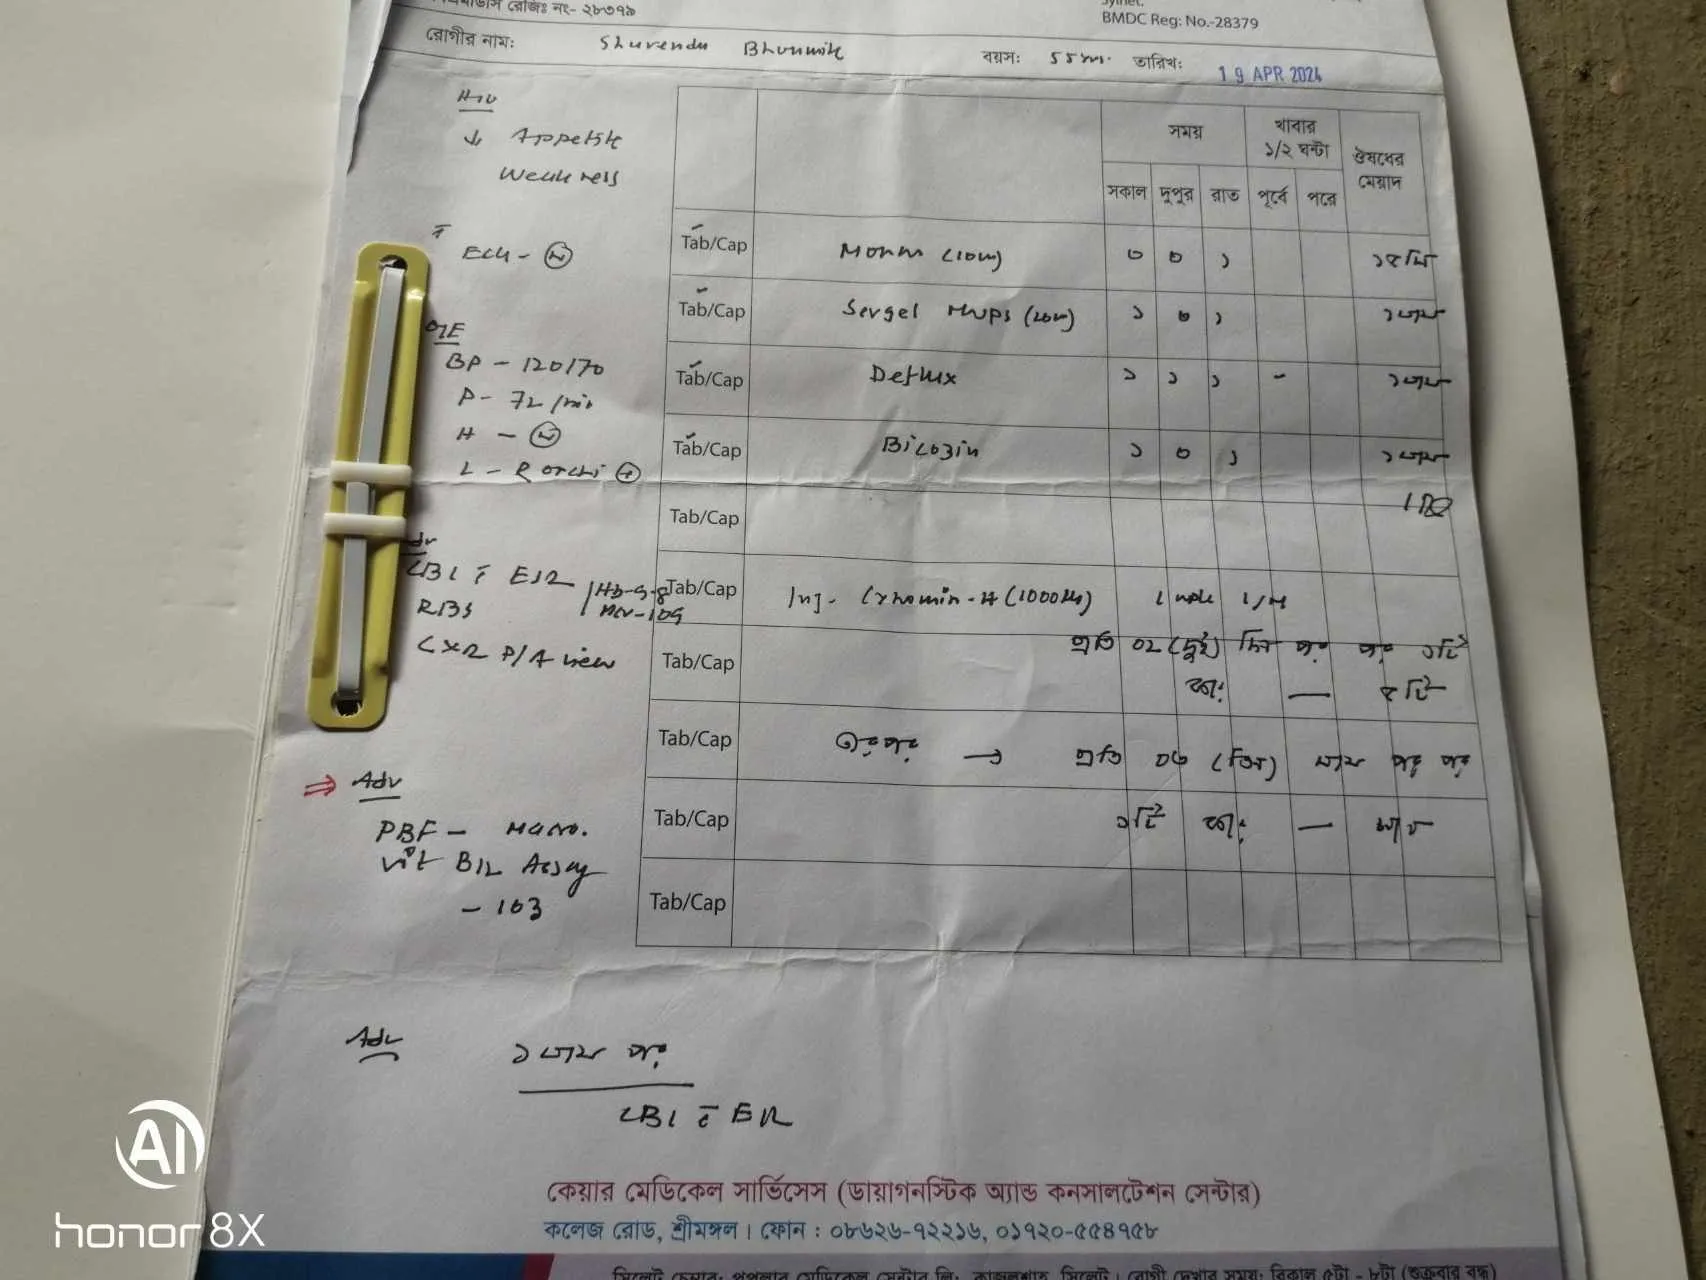 রেজিঃ নং- ২৮৩৭৯
Sylhet.
BMDC Reg: No.-28379
রোগীর নাম: Shurendu Bhowmik বয়স: 55 m. তারিখ: 19 APR 2024
H/O
↓ Appetite
Weakness
ECG - N
O/E
BP - 120/70
P - 72/min
H - N
L - Ronchi +
Adv
CBC c̄ ESR
Hb-9.8
MCV-109
RBS
CXR P/A view
⇒ Adv
PBF - Macro.
vit B12 Assay
- 163
সময়
খাবার
১/২ ঘন্টা
ঔষধের
মেয়াদ
সকাল দুপুর রাত পূর্বে পরে
Tab/Cap Monas (10mg) ০ ০ ১ ১৫দিন
Tab/Cap Sergel Mups (20mg) ১ ০ ১ ১মাস
Tab/Cap Deflux ১ ১ ১ - ১মাস
Tab/Cap Bicozin ১ ০ ১ ১মাস
Tab/Cap
Tab/Cap Inj- Cynomin-H (1000µg) 1 amp I/M
Tab/Cap প্রতি ০২ (দুই) দিন পর পর ১টি
করে — ৫টি
Tab/Cap এরপর → প্রতি ০৩ (তিন) মাস পর পর
Tab/Cap ১টি করে —
Tab/Cap
Adv
১ মাস পর
CBC c̄ ESR
কেয়ার মেডিকেল সার্ভিসেস (ডায়াগনস্টিক অ্যান্ড কনসালটেশন সেন্টার)
কলেজ রোড, শ্রীমঙ্গল। ফোন : ০৮৬২৬-৭২২১৬, ০১৭২০-৫৫৪৭৫৮
সিলেট চেম্বার: পপুলার মেডিকেল সেন্টার লি:, কাজলশাহ, সিলেট। রোগী দেখার সময়: বিকাল ৫টা - ৮টা (শুক্রবার বন্ধ)
AI
honor 8X